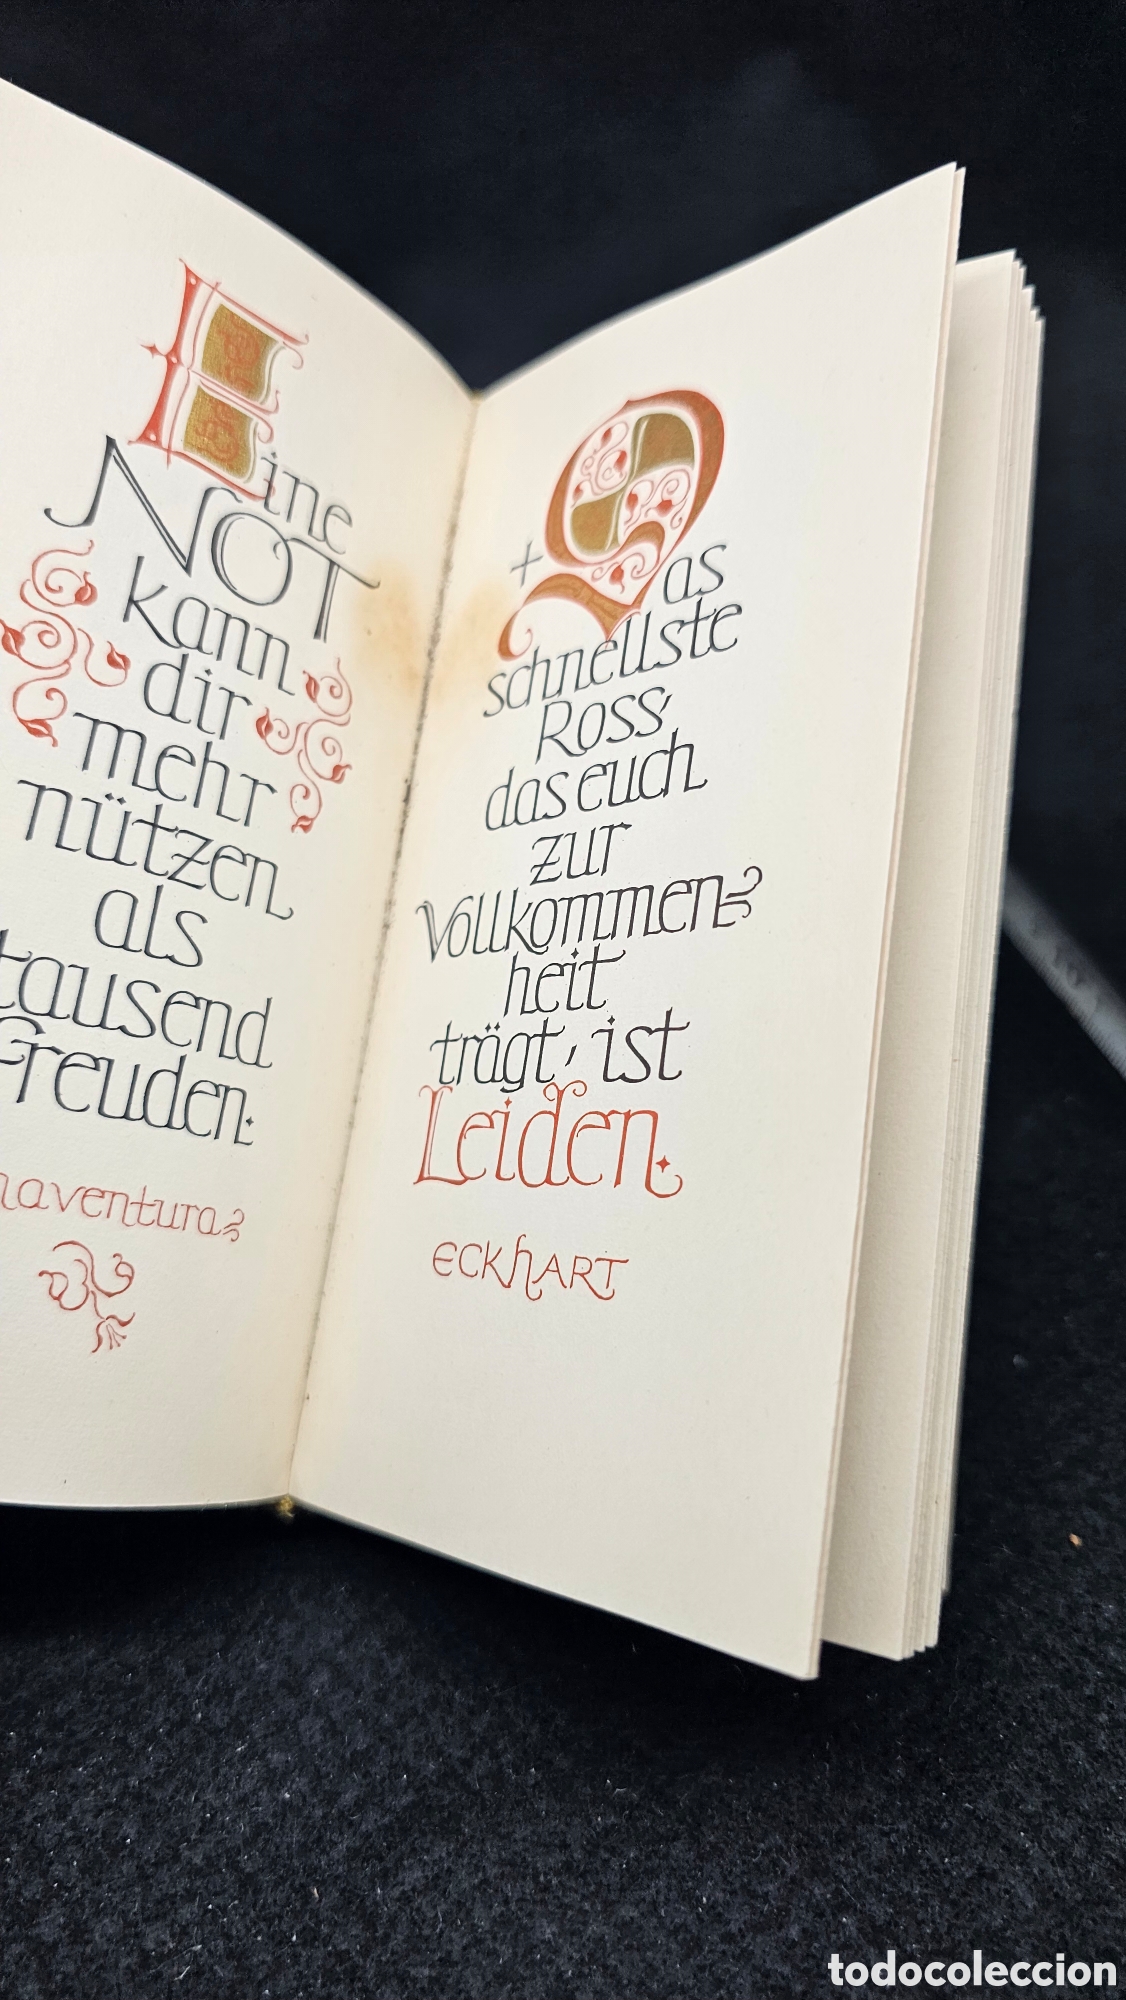 Eine
NOT
kann
dir
mehr
nützen
als
tausend
Freuden.
naventura
+ Das
schnellste
Ross,
das euch
zur
Vollkommen=
heit
trägt, ist
Leiden.
ECKhART
todocoleccion